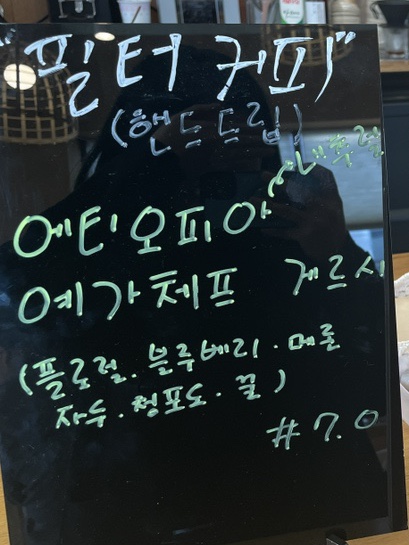 "필터 커피"
(핸드드립)
내추럴
에티오피아
예가체프 게르시
(플로럴. 블루베리. 메론
자두. 청포도. 꿀)
#7.0